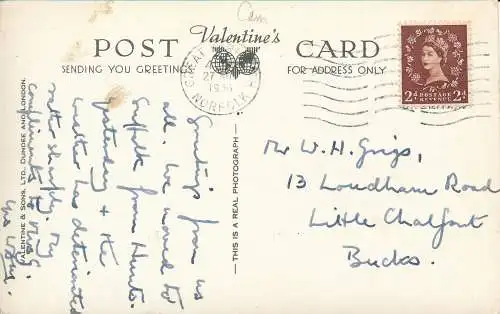 Cam
Valentine's
POST CARD
SENDING YOU GREETINGS
FOR ADDRESS ONLY
GREAT
27
195
NORFOLK
POSTAGE
REVENUE
2d 2d
Greetings from us
all. We moved to
Suffolk from Hunts.
yesterday & the
weather has deteriorated
rather sharply. My
compliments to Mrs G.
VALENTINE & SONS, LTD., DUNDEE AND LONDON.
— THIS IS A REAL PHOTOGRAPH —
Mr W. H. Grigs,
13 Loudham Road
Little Chalfont
Bucks.